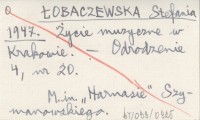 ŁOBACZEWSKA Stefania
1947. Życie muzyczne w
Krakowie. — Odrodzenie
4, nr 20.
M.in. „Harnasie" Szy-
manowskiego.